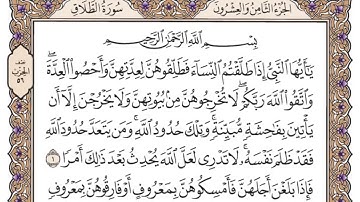 الجزء الثامن والعشرون
سورة الطلاق
بِسْمِ اللَّهِ الرَّحْمَٰنِ الرَّحِيمِ
يَٰٓأَيُّهَا ٱلنَّبِيُّ إِذَا طَلَّقْتُمُ ٱلنِّسَآءَ فَطَلِّقُوهُنَّ لِعِدَّتِهِنَّ وَأَحْصُوا۟ ٱلْعِدَّةَ ۖ
وَٱتَّقُوا۟ ٱللَّهَ رَبَّكُمْ ۖ لَا تُخْرِجُوهُنَّ مِنۢ بُيُوتِهِنَّ وَلَا يَخْرُجْنَ إِلَّآ أَن
يَأْتِينَ بِفَٰحِشَةٍ مُّبَيِّنَةٍ ۚ وَتِلْكَ حُدُودُ ٱللَّهِ ۚ وَمَن يَتَعَدَّ حُدُودَ ٱللَّهِ
فَقَدْ ظَلَمَ نَفْسَهُۥ ۚ لَا تَدْرِى لَعَلَّ ٱللَّهَ يُحْدِثُ بَعْدَ ذَٰلِكَ أَمْرًا ١
فَإِذَا بَلَغْنَ أَجَلَهُنَّ فَأَمْسِكُوهُنَّ بِمَعْرُوفٍ أَوْ فَارِقُوهُنَّ بِمَعْرُوفٍ
نصف
الحزب
٥٦